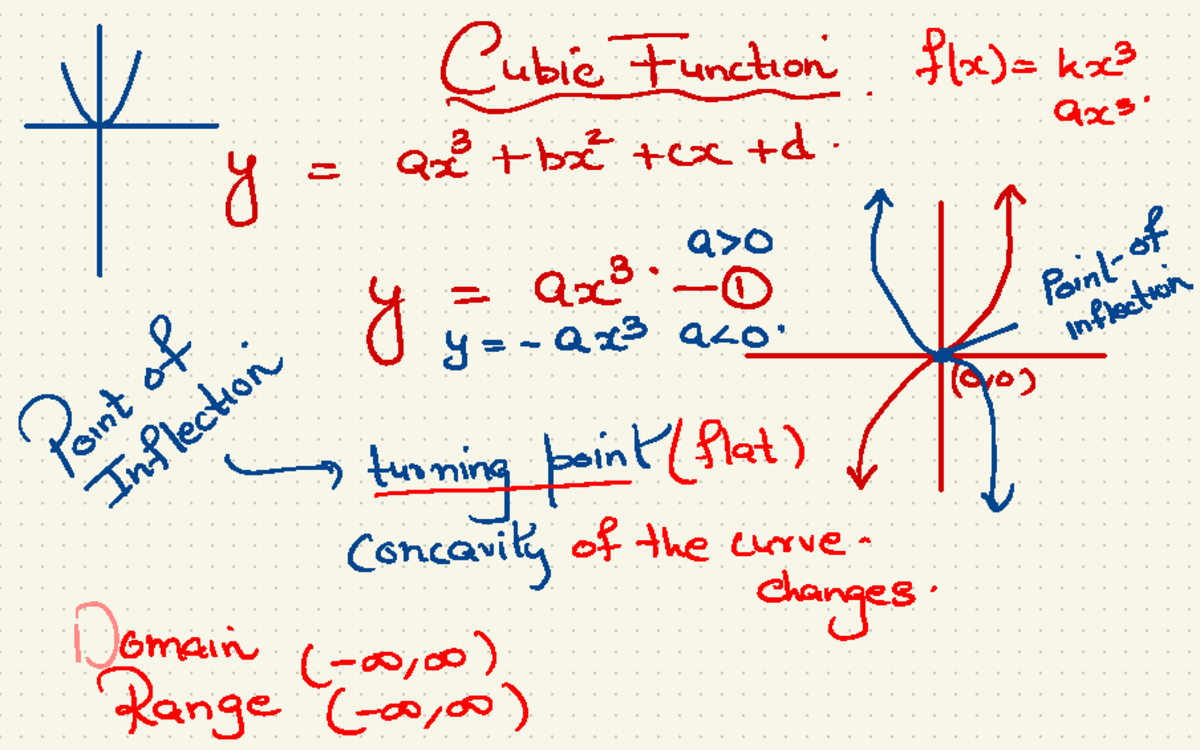 Cubic Function.
f(x) = kx³
ax³.
y = ax³ + bx² + cx + d.
a>0
y = ax³. — ①
y = - ax³ a<0.
Point of inflection
(0,0)
Point of Inflection
→ turning point (flat)
Concavity of the curve.
changes.
Domain (-∞,∞)
Range (-∞,∞)